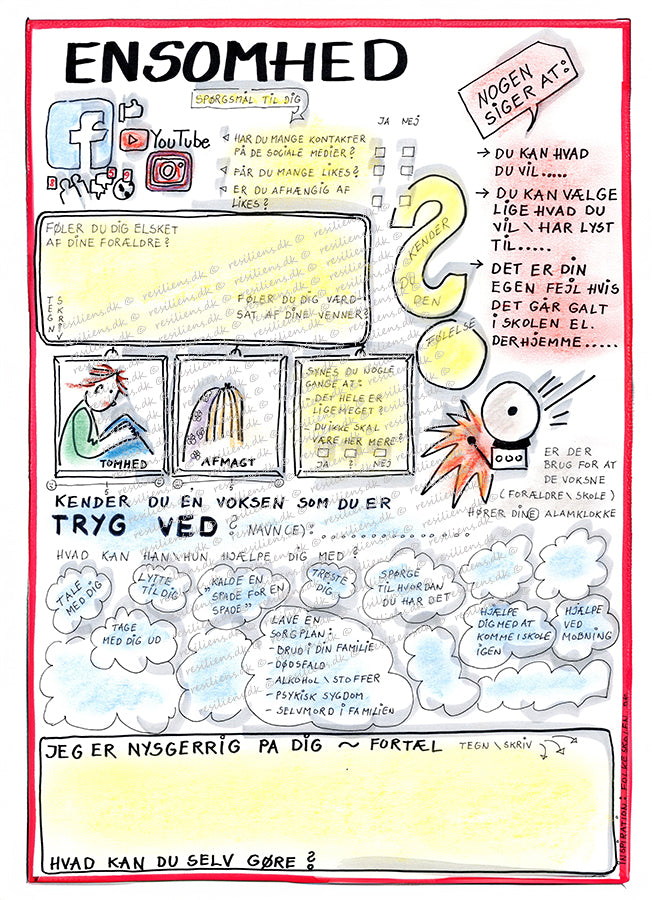 ENSOMHED
SPØRGSMÅL TIL DIG
JA NEJ
YouTube
HAR DU MANGE KONTAKTER
PÅ DE SOCIALE MEDIER?
FÅR DU MANGE LIKES?
ER DU AFHÆNGIG AF
LIKES?
NOGEN
SIGER AT:
→ DU KAN HVAD
DU VIL.....
→ DU KAN VÆLGE
LIGE HVAD DU
VIL \ HAR LYST
TIL.....
→ DET ER DIN
EGEN FEJL HVIS
DET GÅR GALT
I SKOLEN EL.
DERHJEMME.....
FØLER DU DIG ELSKET
AF DINE FORÆLDRE?
TEGN
SKRIV
FØLER DU DIG VÆRD-
SAT AF DINE VENNER?
KENDER
DU
DEN
FØLELSE
TOMHED
AFMAGT
SYNES DU NOGLE
GANGE AT:
- DET HELE ER
LIGEMEGET?
- DU IKKE SKAL
VÆRE HER MERE?
JA ? NEJ
ER DER
BRUG FOR AT
DE VOKSNE
(FORÆLDRE \ SKOLE)
HØRER DIN(E) ALAMKLOKKE
KENDER DU EN VOKSEN SOM DU ER
TRYG VED? NAVN(E):..............
HVAD KAN HAN \ HUN HJÆLPE DIG MED?
TALE
MED DIG
LYTTE
TIL DIG
"KALDE EN
SPADE FOR EN
SPADE"
TRØSTE
DIG
SPØRGE
TIL HVORDAN
DU HAR DET
HJÆLPE
DIG MED AT
KOMME I SKOLE
IGEN
HJÆLPE
VED
MOBNING
TAGE
MED DIG UD
LAVE EN
SORGPLAN:
- BRUD I DIN FAMILIE
- DØDSFALD
- ALKOHOL \ STOFFER
- PSYKISK SYGDOM
- SELVMORD I FAMILIEN
JEG ER NYSGERRIG PA DIG ~ FORTÆL TEGN \ SKRIV
HVAD KAN DU SELV GØRE?
INSPIRATION: FOLKESKOLEN.DK
resiliens.dk ©